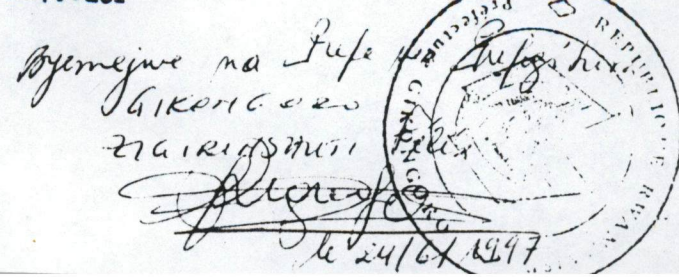 Byemejwe na Prefe wa Prefegitura
GIKONGORO
ZIGIRINSHUTI Félix
le 24/6/1997
REPUBLIQUE RWANDAISE
Préfecture GIKONGORO